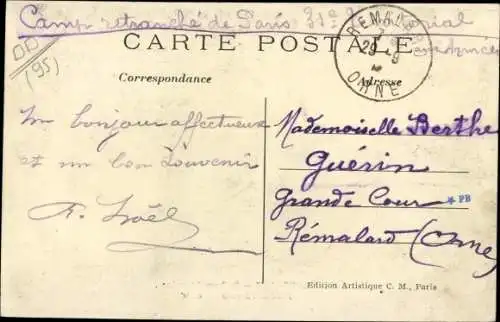 Camp retranché de Paris 31e
CARTE POSTALE
REMALARD
29
ORNE
DD
(95)
Correspondance
Adresse
Un bonjour affectueux
et un bon souvenir
F. Noël
Mademoiselle Berthe
Guérin
Grande Cour
* PB
Rémalard (Orne)
Edition Artistique C. M., Paris